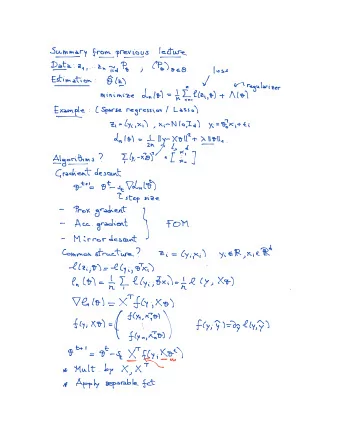 Summary from previous lecture
Data: z₁, ... zₙ ~iid P_θ , (P_θ)_θ∈Θ
loss
Estimation: θ̂(z)
regularizer
minimize 𝓛ₙ(θ) = 1/n Σ ℓ(zᵢ,θ) + Λ(θ)
Example: (Sparse regression / Lasso)
zᵢ = (yᵢ,xᵢ) , xᵢ ~ N(0,I_d) yᵢ = θᵀxᵢ + εᵢ
𝓛ₙ(θ) = 1/2n ‖y - Xθ‖² + λ‖θ‖₁
Algorithms?
Gradient descent
θᵗ⁺¹ = θᵗ - ∇𝓛ₙ(θᵗ)
step size
- Prox gradient
- Acc gradient FOM
- Mirror descent
Common structure? zᵢ = (yᵢ,xᵢ) yᵢ∈ℝ, xᵢ∈ℝᵈ
ℓ(zᵢ,θ) = ℓ(yᵢ,θᵀxᵢ)
ℓₙ(θ) = 1/n Σ ℓ(yᵢ,θᵀxᵢ) = 1/n ℓ(y, Xθ)
∇ℓₙ(θ) = Xᵀf(y, Xθ)
f(y, Xθ) = ( f(y₁,x₁ᵀθ) ⋮ f(yₙ,xₙᵀθ) ) f(y,ŷ) = ∂_ŷ ℓ(y,ŷ)
θᵗ⁺¹ = θᵗ - Xᵀf(y, Xθᵗ)
* Mult by X, Xᵀ
* Apply separable fct